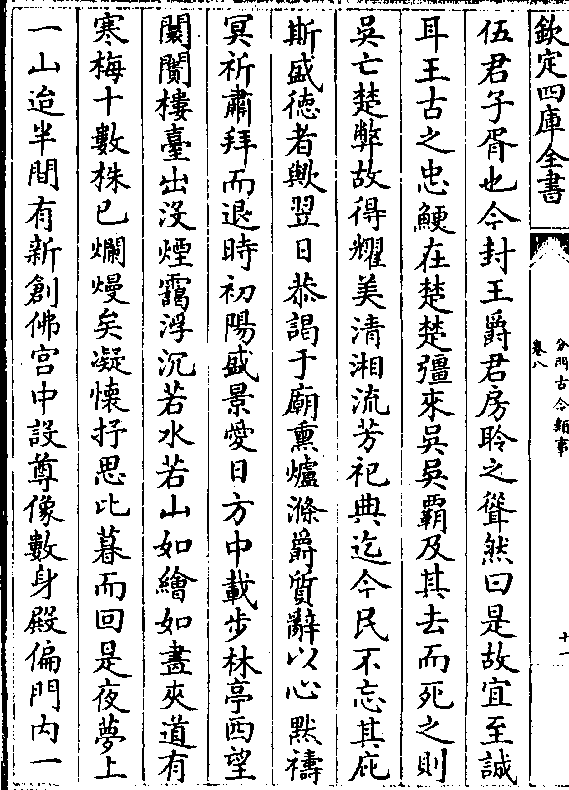 欽定四庫全書
分門古今類事
卷八
十一
伍君子胥也今封王爵君房聆之聳然曰是故宜至誠
耳王古之忠鯁在楚楚彊來吳吳霸及其去而死之則
吳亡楚弊故得耀美清湘流芳祀典迄今民不忘其庇
斯盛德者歟翌日恭謁于廟熏爐滌爵質辭以心默禱
冥祈肅拜而退時初陽盛景愛日方中載步林亭西望
闤闠樓臺出没煙靄浮沉若水若山如繪如畫夾道有
寒梅十數株已爛熳矣凝懷抒思比暮而回是夜夢上
一山迨半間有新創佛宫中設尊像數身殿偏門内一